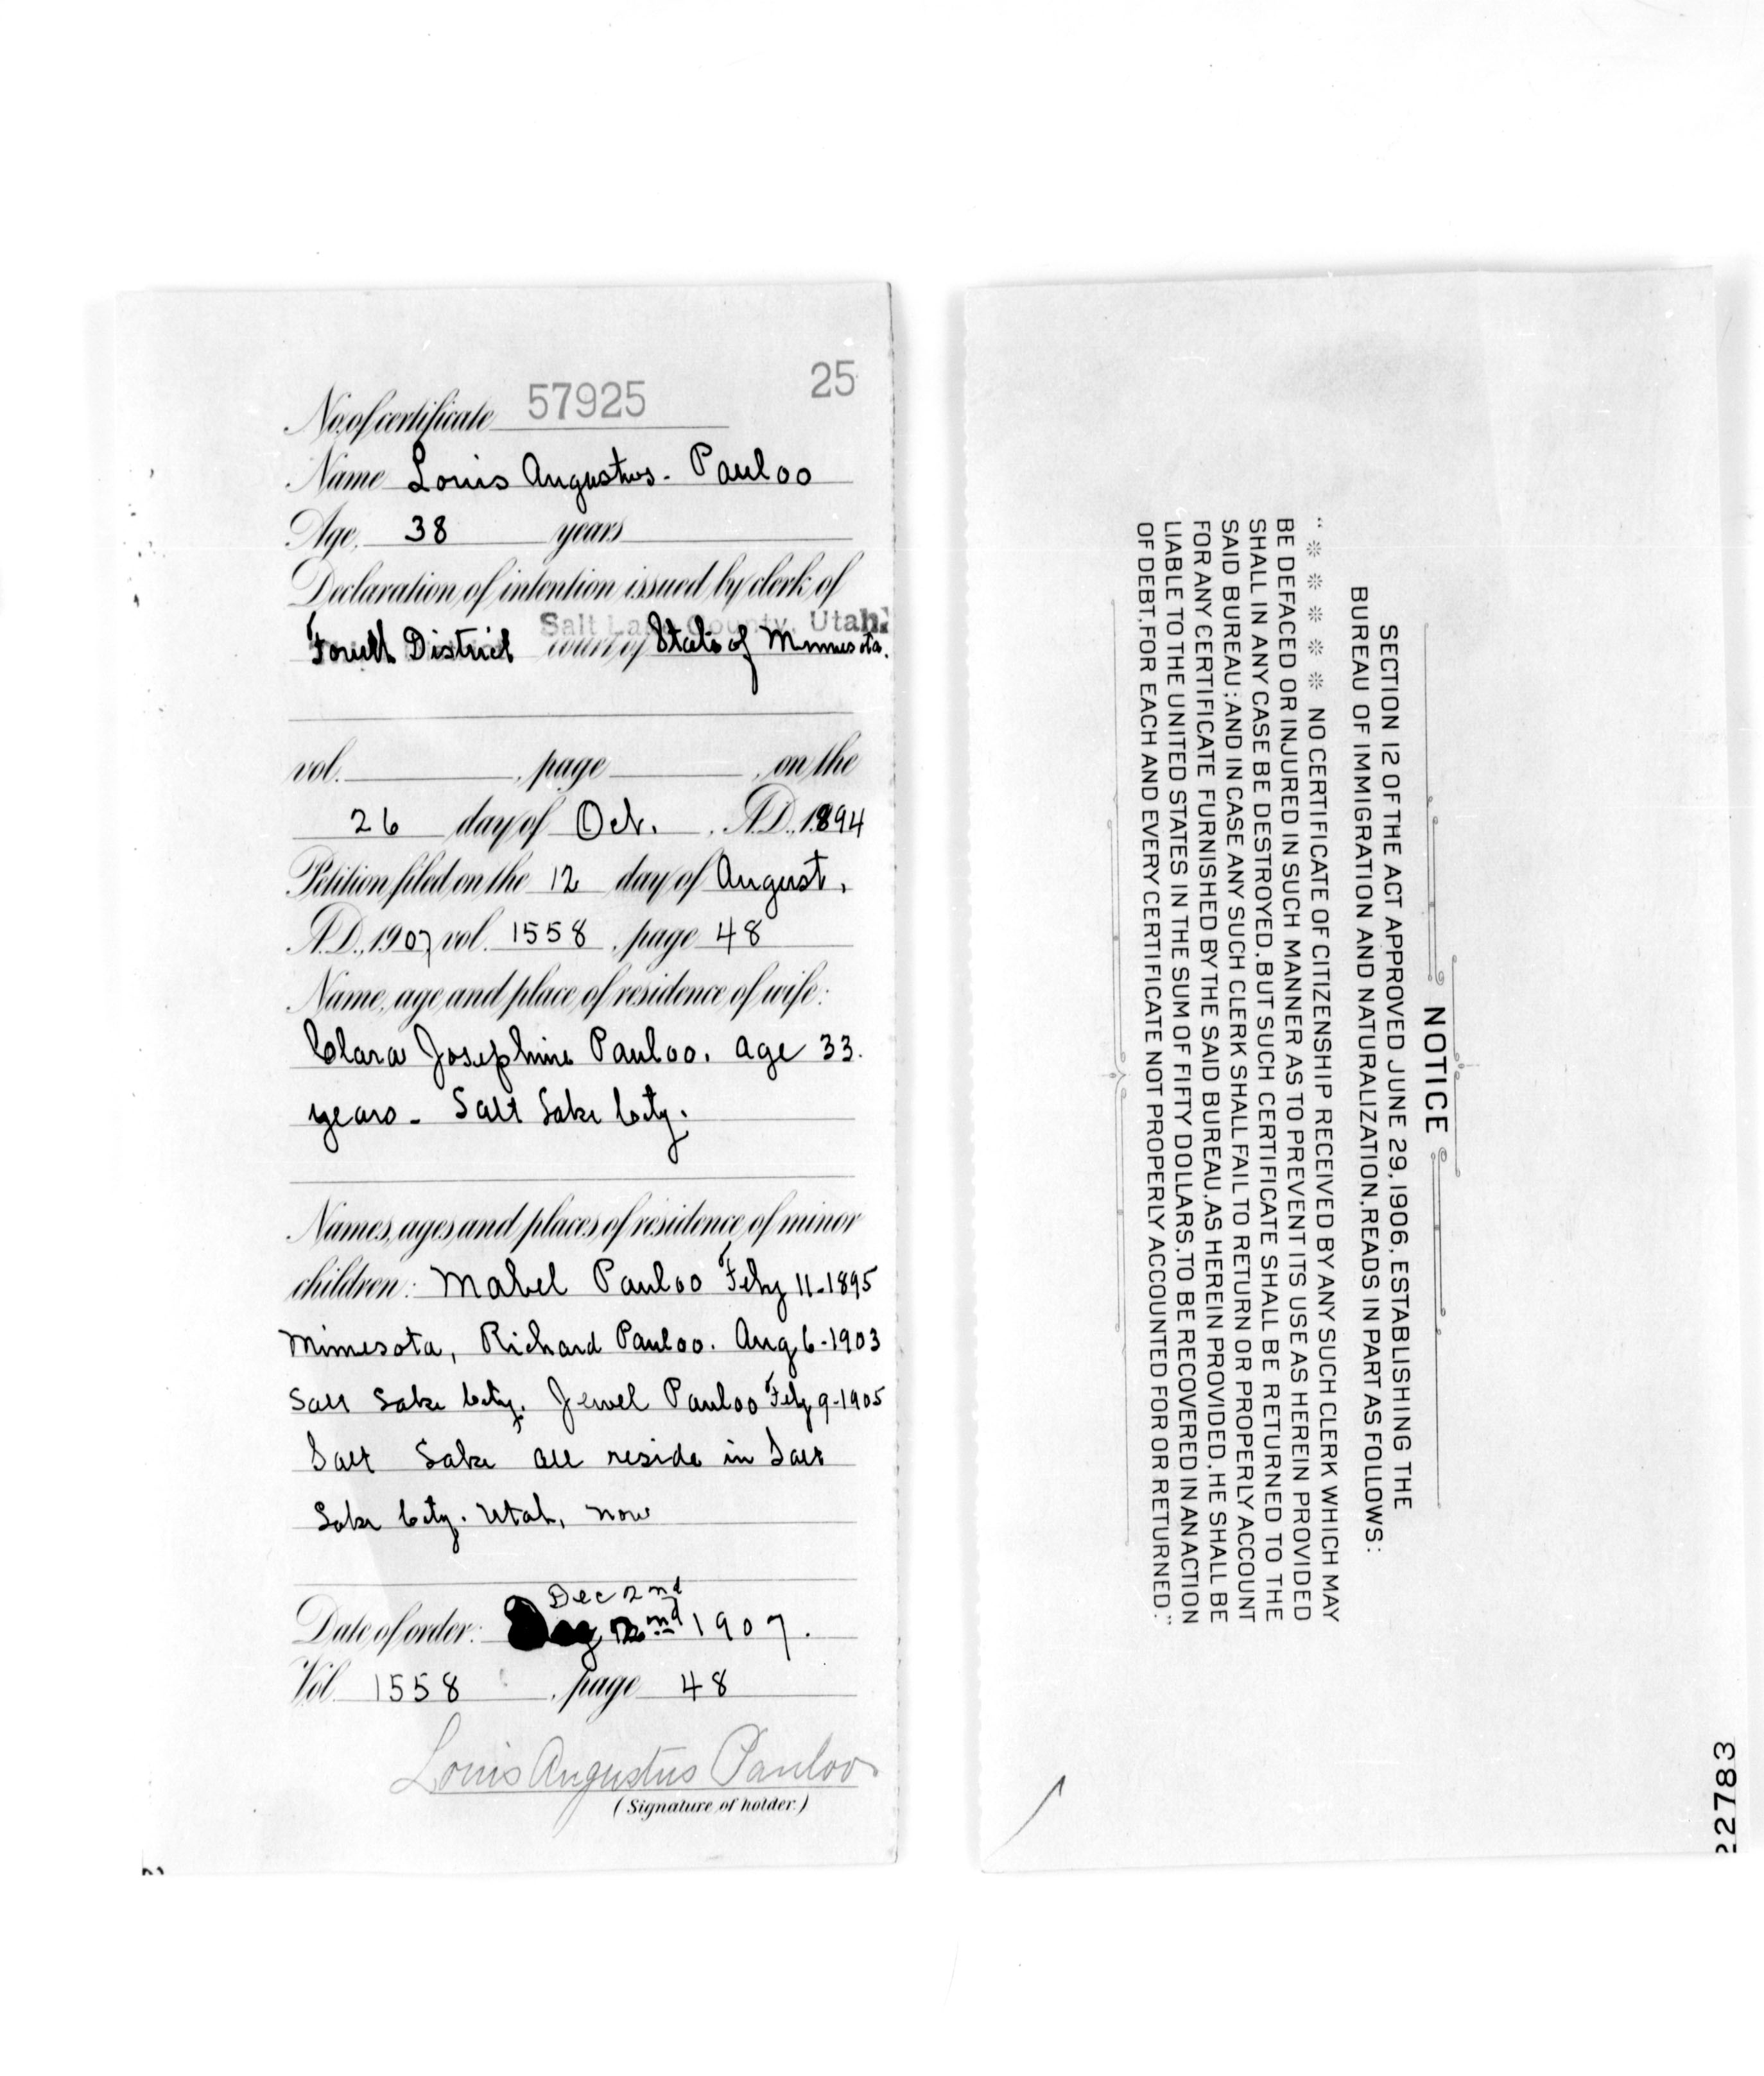 25
No. of certificate 57925
Name Louis Augustus. Pauloo
Age, 38 years
Declaration of intention issued by clerk of
Salt Lake County, Utah.
Fourth District court of State of Minnesota.
vol. , page , on the
26 day of Oct. , A.D., 1894
Petition filed on the 12 day of August,
A.D., 1907, vol. 1558, page 48
Name, age and place of residence of wife:
Clara Josephine Pauloo. age 33.
years - Salt Lake City.
Names, ages and places of residence of minor
children: Mabel Pauloo Feby 11-1895
Minnesota, Richard Pauloo. Aug 6-1903
Salt Lake City. Jewel Pauloo Feby 9-1905
Salt Lake all reside in Salt
Lake City. Utah, now
Dec 2nd
Date of order: 2nd 1907.
Vol. 1558, page 48
Louis Augustus Pauloo
(Signature of holder.)
NOTICE
SECTION 12 OF THE ACT APPROVED JUNE 29, 1906, ESTABLISHING THE
BUREAU OF IMMIGRATION AND NATURALIZATION, READS IN PART AS FOLLOWS:
"* * * * * * NO CERTIFICATE OF CITIZENSHIP RECEIVED BY ANY SUCH CLERK WHICH MAY
BE DEFACED OR INJURED IN SUCH MANNER AS TO PREVENT ITS USE AS HEREIN PROVIDED
SHALL IN ANY CASE BE DESTROYED, BUT SUCH CERTIFICATE SHALL BE RETURNED TO THE
SAID BUREAU; AND IN CASE ANY SUCH CLERK SHALL FAIL TO RETURN OR PROPERLY ACCOUNT
FOR ANY CERTIFICATE FURNISHED BY THE SAID BUREAU, AS HEREIN PROVIDED, HE SHALL BE
LIABLE TO THE UNITED STATES IN THE SUM OF FIFTY DOLLARS, TO BE RECOVERED IN AN ACTION
OF DEBT, FOR EACH AND EVERY CERTIFICATE NOT PROPERLY ACCOUNTED FOR OR RETURNED."